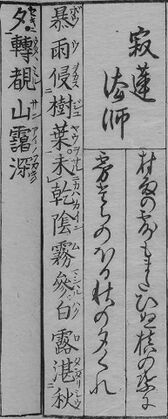 寂蓮
法師
村雨の露もまたひぬ槙の葉に
霧たちのほる秋の夕くれ
暴雨侵樹葉未乾陰霧參白露湛秋
夕轉覩山靄深